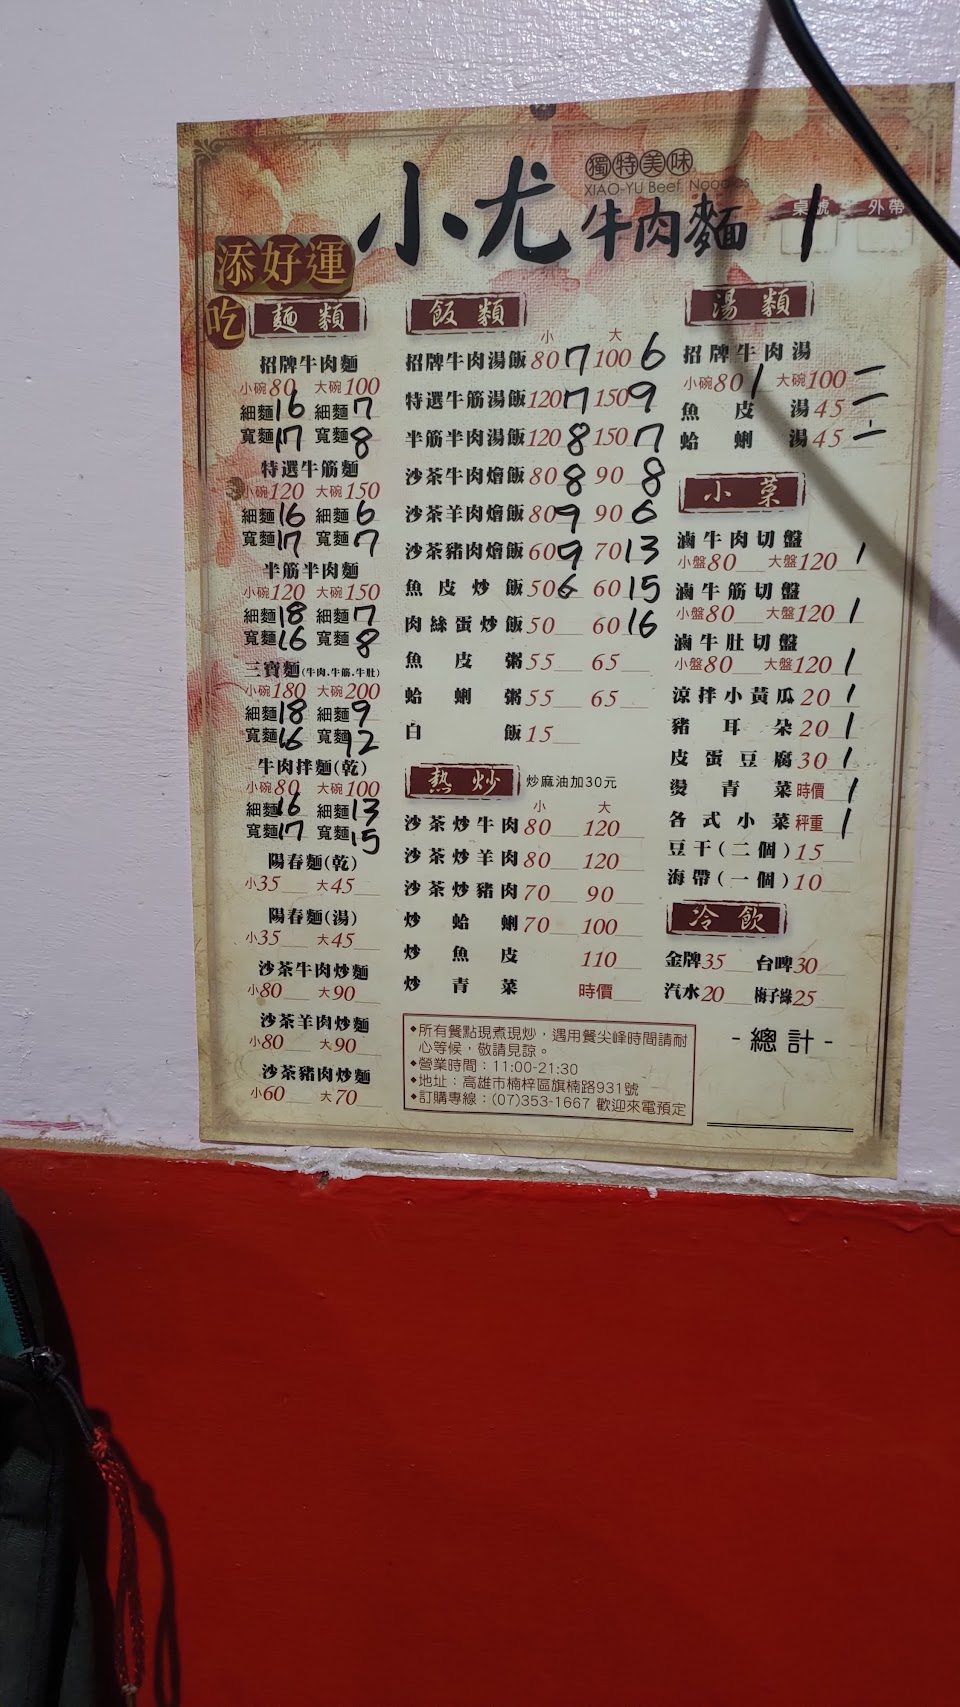 獨特美味
XIAO-YU Beef Noodles
小尤牛肉麵 1
桌號 外帶
添好運
吃
麵類
招牌牛肉麵
小碗80 大碗100
細麵16 細麵7
寬麵17 寬麵8
特選牛筋麵
小碗120 大碗150
細麵16 細麵6
寬麵17 寬麵7
半筋半肉麵
小碗120 大碗150
細麵18 細麵7
寬麵16 寬麵8
三寶麵(牛肉.牛筋.牛肚)
小碗180 大碗200
細麵18 細麵9
寬麵16 寬麵12
牛肉拌麵(乾)
小碗80 大碗100
細麵16 細麵13
寬麵17 寬麵15
陽春麵(乾)
小35 大45
陽春麵(湯)
小35 大45
沙茶牛肉炒麵
小80 大90
沙茶羊肉炒麵
小80 大90
沙茶豬肉炒麵
小60 大70
飯類
小 大
招牌牛肉湯飯80 7 100 6
特選牛筋湯飯120 7 150 9
半筋半肉湯飯120 8 150 7
沙茶牛肉燴飯80 8 90 8
沙茶羊肉燴飯80 9 90 6
沙茶豬肉燴飯60 9 70 13
魚皮炒飯50 6 60 15
肉絲蛋炒飯50 60 16
魚皮粥55 65
蛤蜊粥55 65
白飯15
熱炒 炒麻油加30元
小 大
沙茶炒牛肉80 120
沙茶炒羊肉80 120
沙茶炒豬肉70 90
炒蛤蜊70 100
炒魚皮 110
炒青菜 時價
◆所有餐點現煮現炒，遇用餐尖峰時間請耐
心等候，敬請見諒。
◆營業時間：11:00-21:30
◆地址：高雄市楠梓區旗楠路931號
◆訂購專線：(07)353-1667 歡迎來電預定
湯類
招牌牛肉湯
小碗80 1 大碗100 一
魚皮湯45 二
蛤蜊湯45 二
小菜
滷牛肉切盤
小盤80 大盤120 1
滷牛筋切盤
小盤80 大盤120 1
滷牛肚切盤
小盤80 大盤120 1
涼拌小黃瓜20 1
豬耳朵20 1
皮蛋豆腐30 1
燙青菜時價 1
各式小菜秤重 1
豆干(二個)15
海帶(一個)10
冷飲
金牌35 台啤30
汽水20 梅子綠25
-總計-